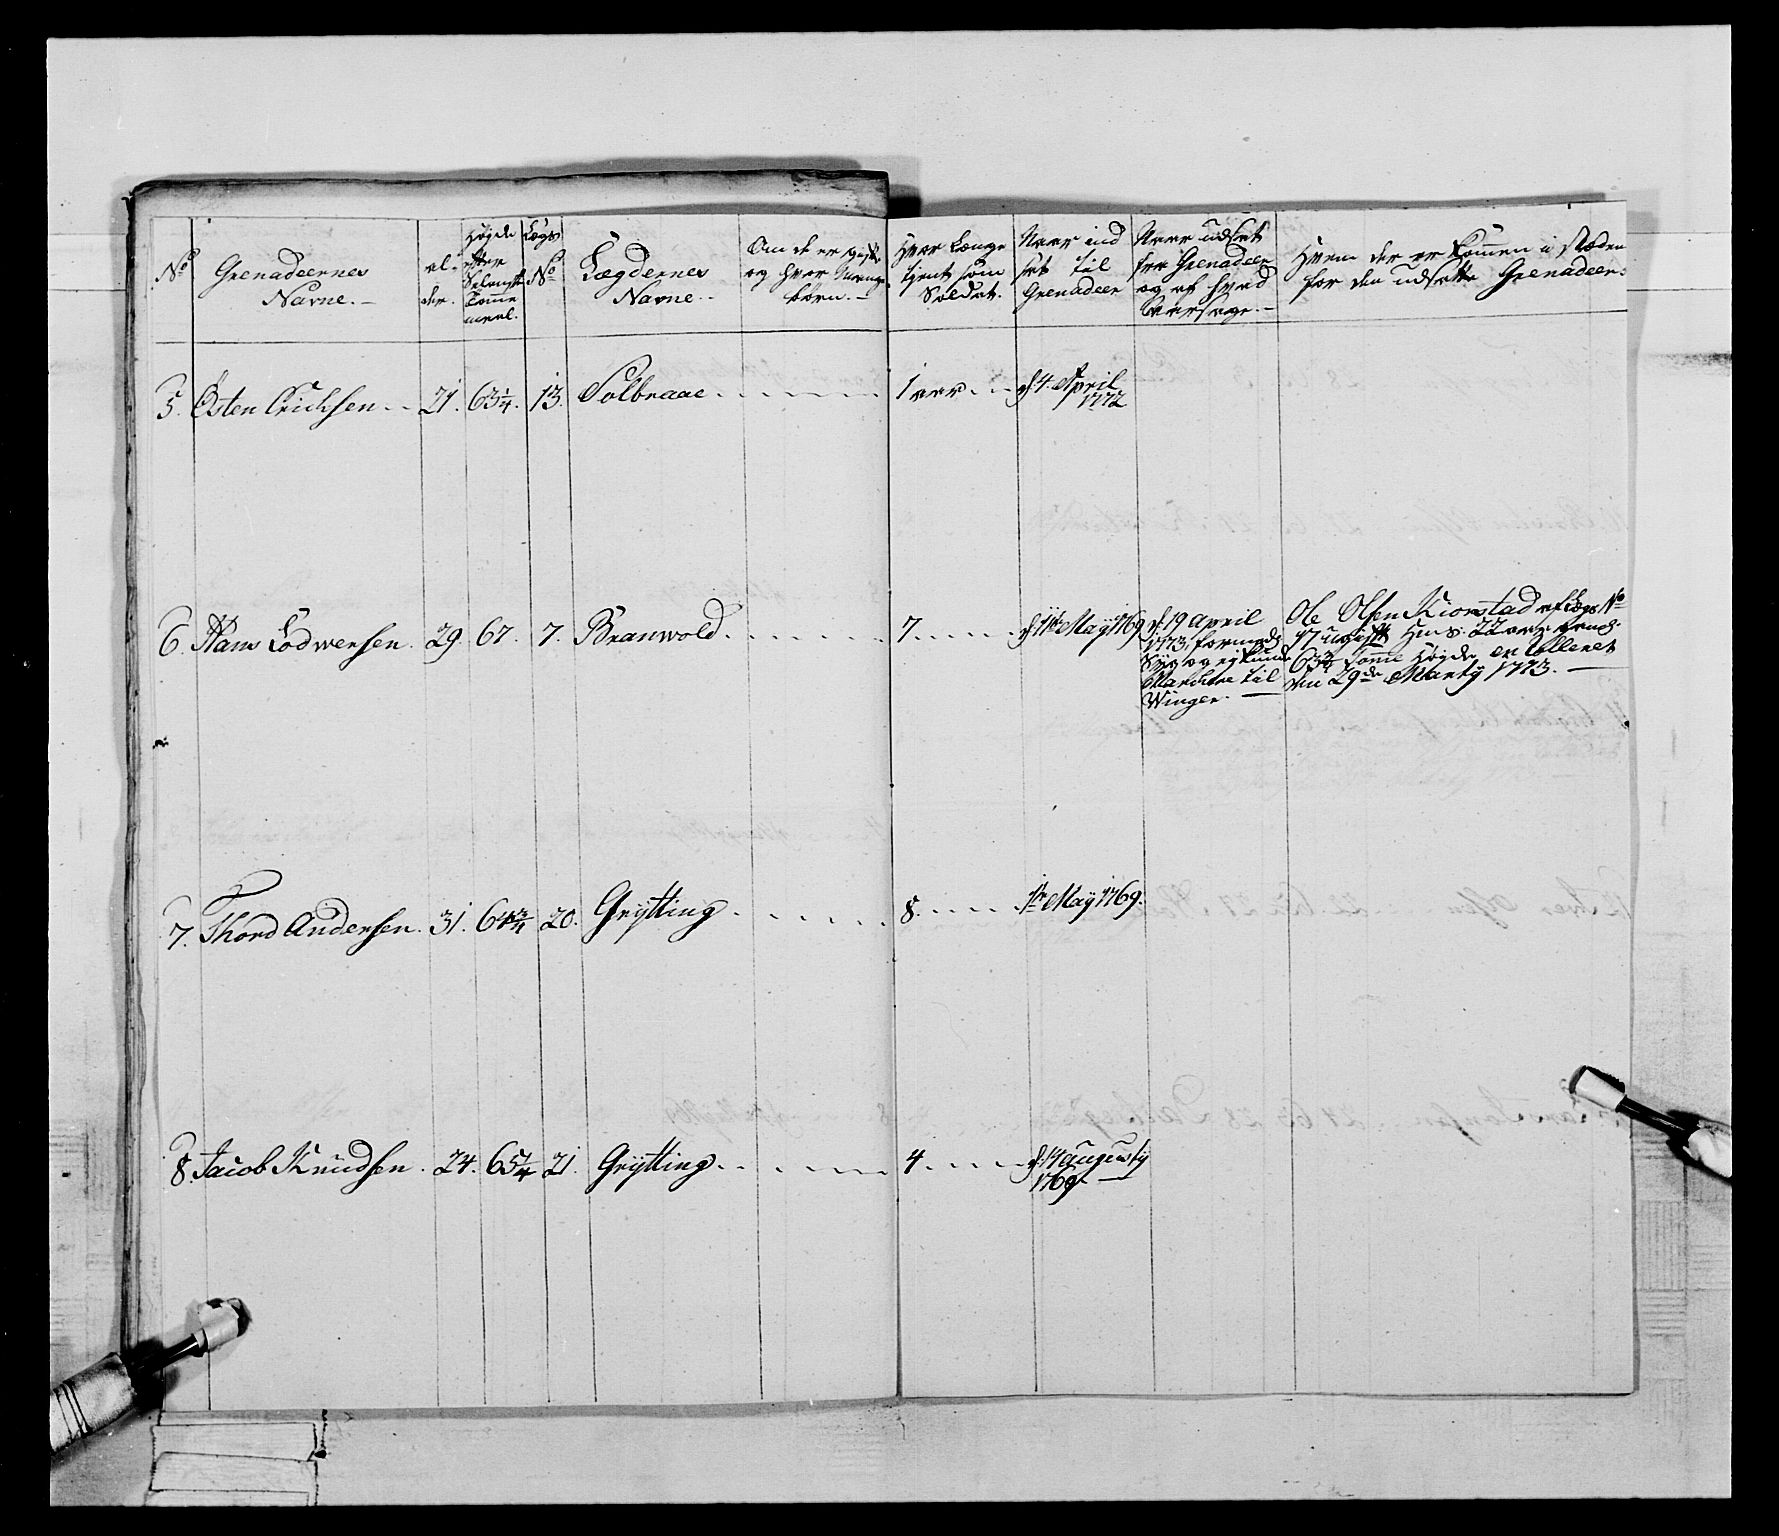 No
Grenadeernes
Navne.-
al-
der.
Høyde
efter
Selanste
Tomme
maal.
Lægs
No
Lægdernes
Navne.-
Om de er gift
og hvor Mange
børn.-
Hvor Længe
tient som
Soldat.
Naar ind
sat til
Grenadeer
Naar udsat
fra Grenadeer
og af hvad
Aarsage.-
Hvem der er kommen i Stæden
for den udsatte Grenadeer.
5. Østen Erichsen - - 21. 63 1/4. 13. Solbraae - - - - - 1 aar - - d. 4. April
1772
6. Hans Lodwersen. 29. 67. 7. Branwold - - - - - 7 - - - - d. 1te May 1769
d 19 April
1773, formedelst
Syg og ej kunde
Marchere til
Winger.-
Ole Olsen Kionstad af Lægs No
17 ugift Hus. 22 aar gam.
63 3/4 tomme Høyde er
den 29de Marty 1773.-
7. Thord Andersen. 31. 64 3/4 20. Grytting - - - - - 8. - - - 1te May 1769.
8. Jacob Knudsen. 24. 65 1/4 21. Grytting - - - - - 4 - - - - d. 14 Augusty
1769.-